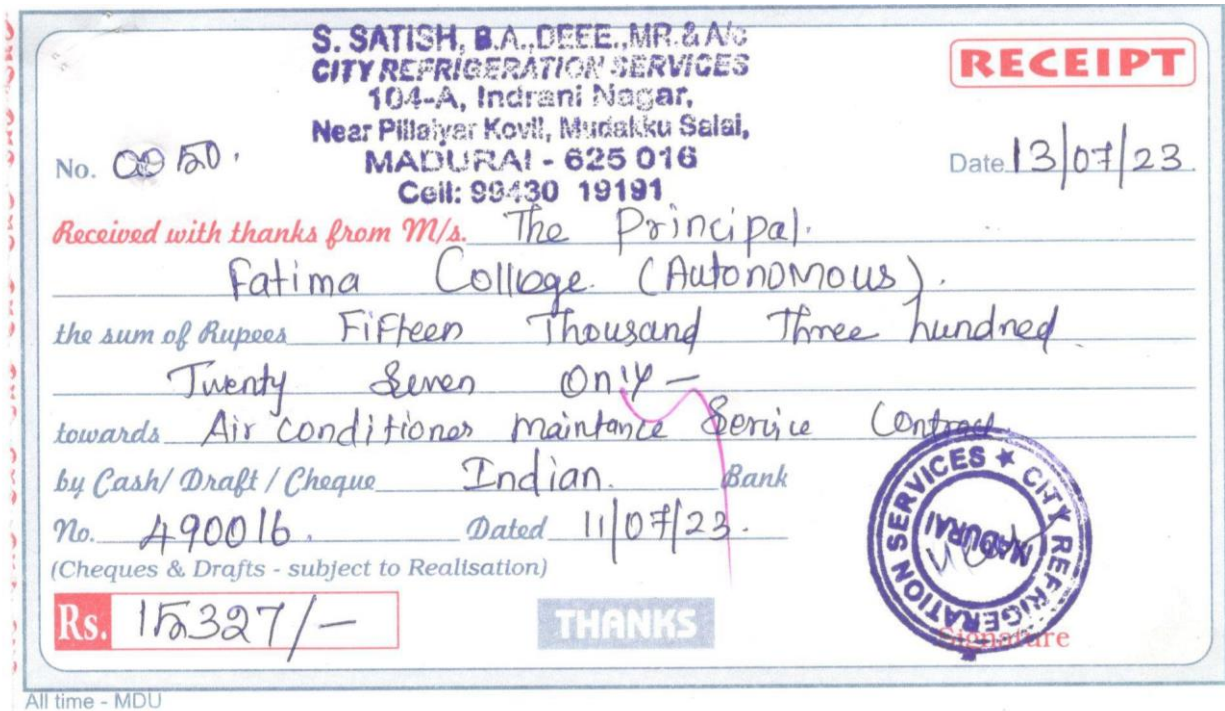 S. SATISH, B.A.,DEEE.,MR.& A/c
CITY REFRIGERATION SERVICES
104-A, Indrani Nagar,
Near Pillaiyar Kovil, Mudakku Salai,
MADURAI - 625 016
Cell: 99430 19191
RECEIPT
No. 0050.
Date 13/07/23
Received with thanks from M/s. The Principal.
Fatima College (Autonomous).
the sum of Rupees Fifteen Thousand Three hundred
Twenty Seven Only -
towards Air Conditioner maintance Service Contract
by Cash/ Draft / Cheque Indian. Bank
No. 490016. Dated 11/07/23.
(Cheques & Drafts - subject to Realisation)
Rs. 15327/-
THANKS
CITY REFRIGERATION SERVICES
MADURAI
Signature
All time - MDU